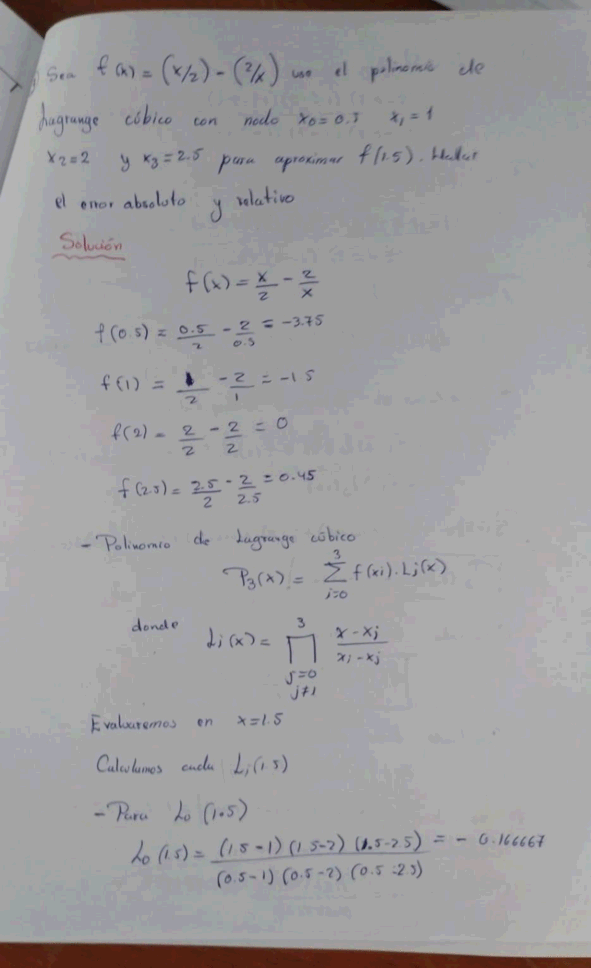 Sea f(x) = (x/2) - (2/x) use el polinomio de
Lagrange cúbico con nodo x0=0.5 x1=1
x2=2 y x3=2.5 para aproximar f(1.5). Hallar
el error absoluto y relativo
Solución
f(x) = x/2 - 2/x
f(0.5) = 0.5/2 - 2/0.5 = -3.75
f(1) = 1/2 - 2/1 = -1.5
f(2) = 2/2 - 2/2 = 0
f(2.5) = 2.5/2 - 2/2.5 = 0.45
- Polinomio de Lagrange cúbico
P3(x) = 3 Σ i=0 f(xi).Li(x)
donde Li(x) = 3 ∏ j=0 j≠i x-xj/xi-xj
Evaluaremos en x=1.5
Calculamos cada Li(1.5)
- Para L0 (1.5)
L0(1.5) = (1.5-1) (1.5-2) (1.5-2.5)/(0.5-1) (0.5-2) (0.5-2.5) = -0.166667